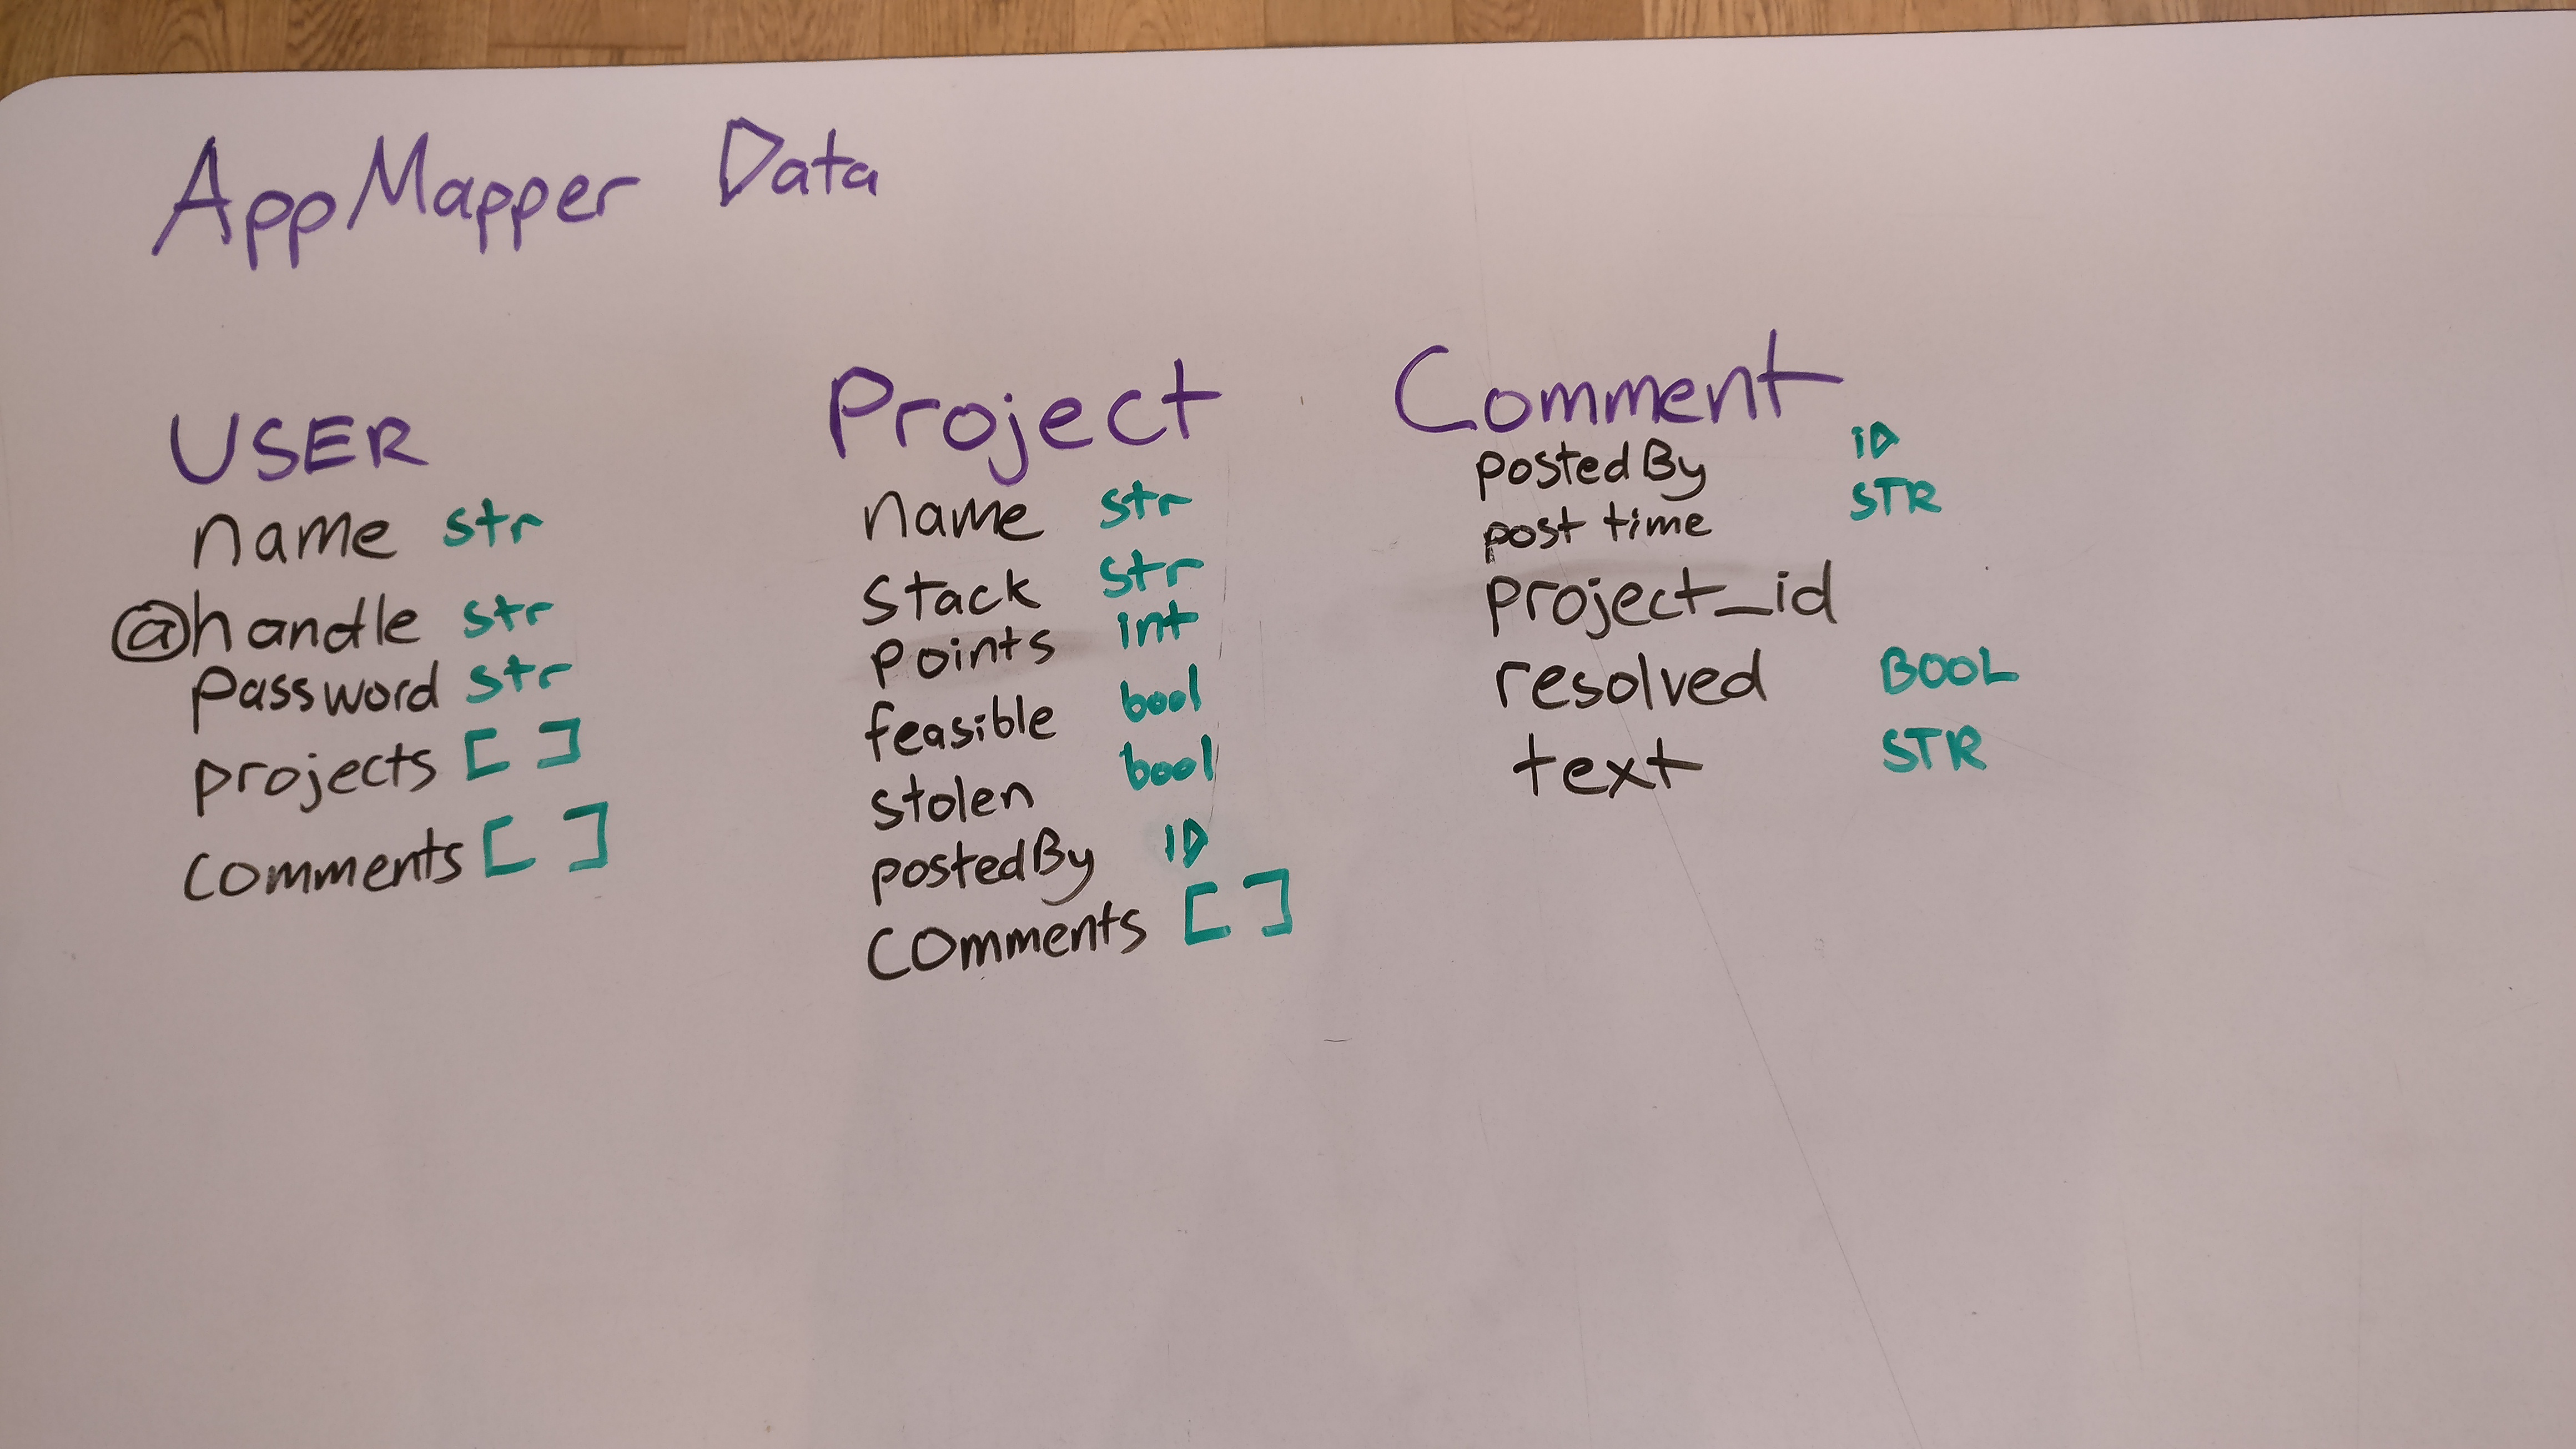 AppMapper Data
USER
name str
@handle str
password str
projects [ ]
comments [ ]
Project
name str
stack str
points int
feasible bool
stolen bool
postedBy ID
comments [ ]
Comment
postedBy iD
post time STR
project_id
resolved BOOL
text STR